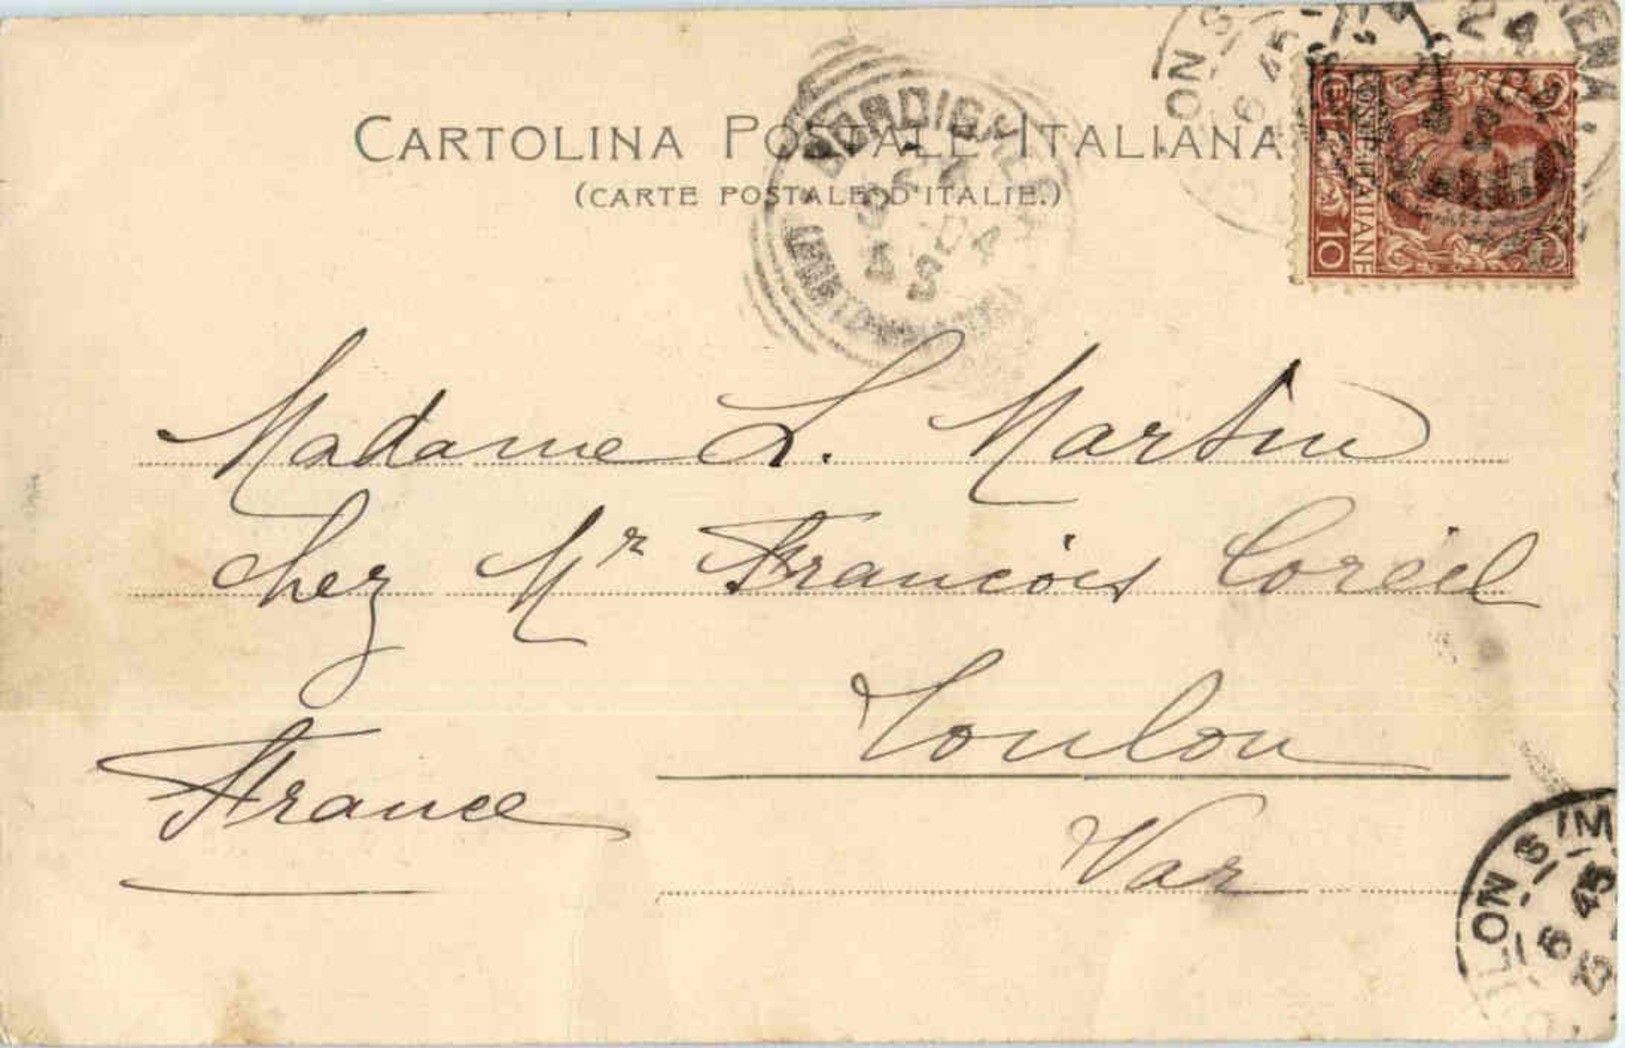 CARTOLINA POSTALE ITALIANA
(CARTE POSTALE D'ITALIE.)
BORDIGHERA
POSTE ITALIANE
10
Madame L. Martin
chez Mr François Coreil
Toulon
Var
France
LON S M
6 45